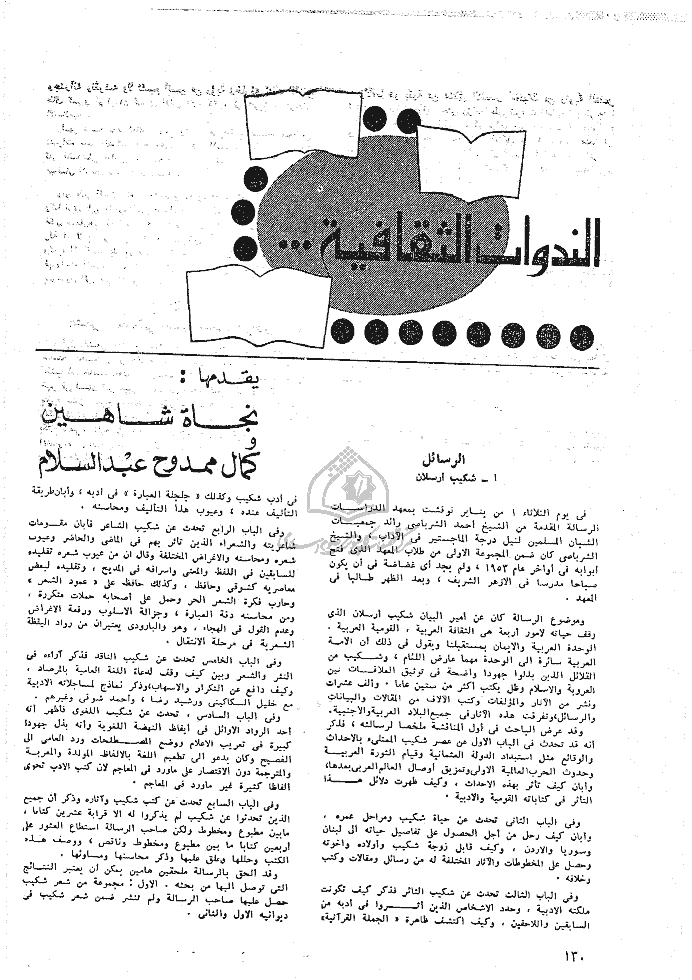 الندوات الثقافية ...
يقدمها :
نجاة شاهين
و
كمال ممدوح عبد السلام
الرسائل
١ ــ شكيب أرسلان
فى يوم الثلاثاء ١ من يناير نوقشت بمعهد الدراسات
الرسالة المقدمة من الشيخ أحمد الشرباصى رائد جمعيات
الشبان المسلمين لنيل درجة الماجستير فى الآداب ، والشيخ
الشرباصى كان ضمن المجموعة الاولى من طلاب المعهد الذى فتح
أبوابه فى أواخر عام ١٩٥٣ ، ولم يجد أى غضاضة فى أن يكون
صباحا مدرسا فى الازهر الشريف ، وبعد الظهر طالبا فى
المعهد .
وموضوع الرسالة كان عن أمير البيان شكيب أرسلان الذى
وقف حياته لامور أربعة هى الثقافة العربية ، القومية العربية ،
الوحدة العربية والايمان بمستقبلنا ويقول فى ذلك أن الامة
العربية سائرة الى الوحدة مهما عارض اللئام ، وشكيب من
القلائل الذين بذلوا جهودا واضحة فى توثيق العلاقات بين
العروبة والاسلام وظل يكتب أكثر من ستين عاما . وألف عشرات
ونشر من الآثار والمؤلفات وكتب الآلاف من المقالات والبيانات
والرسائل،وتفرقت هذه الآثارفى جميع البلاد العربية والاجنبية.
وقد عرض الباحث فى أول المناقشة ملخصا لرسالته ، فذكر
أنه قد تحدث فى الباب الاول عن عصر شكيب الممتلىء بالاحداث
والوقائع مثل استبداد الدولة العثمانية وقيام الثورة العربية
وحدوث الحرب العالمية الاولى وتمزيق أوصال العالم العربى بعدها،
وأبان كيف تأثر بهذه الاحداث ، وكيف ظهرت دلائل هذا
التأثر فى كتاباته القومية والادبية .
وفى الباب الثانى تحدث عن حياة شكيب ومراحل عمره ،
وأبان كيف رحل من أجل الحصول على تفاصيل حياته الى لبنان
وسوريا والاردن ، وكيف قابل زوجة شكيب وأولاده واخوته
وحصل على المخطوطات والآثار المختلفة له من رسائل ومقالات وكتب
وخلافه .
وفى الباب الثالث تحدث عن شكيب الناثر فذكر كيف تكونت
ملكته الادبية ، وحدد الاشخاص الذين أثروا فى أدبه من
السابقين واللاحقين ، وكيف اكتشف ظاهرة « الجملة القرآنية»
فى أدب شكيب وكذلك « جلجلة العبارة » فى أدبه ، وأبان طريقة
التأليف عنده ، وعيوب هذا التأليف ومحاسنه .
وفى الباب الرابع تحدث عن شكيب الشاعر فأبان مقومات
شاعريته والشعراء الذين تأثر بهم فى الماضى والحاضر وعيوب
شعره ومحاسنه والاغراض المختلفة وقال ان من عيوب شعره تقليده
للسابقين فى اللفظ والمعنى واسرافه فى المديح ، وتقليده لبعض
معاصريه كشوقى وحافظ ، وكذلك حافظ على « عمود الشعر »
وحارب فكرة الشعر الحر وحمل على أصحابه حملات متكررة ،
ومن محاسنه دقة العبارة ، وجزالة الاسلوب ورفعة الاغراض
وعدم القول فى الهجاء ، وهو والبارودى يعتبران من رواد اليقظة
الشعرية فى مرحلة الانتقال .
وفى الباب الخامس تحدث عن شكيب الناقد فذكر آراءه فى
النثر والشعر وبين كيف وقف لدعاة اللغة العامية بالمرصاد ،
وكيف دافع عن التكرار والاسهاب،وذكر نماذج لمساجلاته الادبية
مع خليل السكاكينى ورشيد رضا ، وأحمد شوقى وغيرهم .
وفى الباب السادس ، تحدث عن شكيب اللغوى فأظهر أنه
أحد الرواد الاوائل فى ايقاظ النهضة اللغوية وأنه بذل جهودا
كبيرة فى تعريب الاعلام ووضع المصطلحات ورد العامى الى
الفصيح وكان يدعو الى تطعيم اللغة بالالفاظ المولدة والمعربة
والمترجمة دون الاقتصار على ماورد فى المعاجم لان كتب الادب تحوى
ألفاظا كثيرة غير ماورد فى المعاجم .
وفى الباب السابع تحدث عن كتب شكيب وآثاره وذكر أن جميع
الذين تحدثوا عن شكيب لم يذكروا له الا قرابة عشرين كتابا ،
مابين مطبوع ومخطوط ولكن صاحب الرسالة استطاع العثور على
أربعين كتابا ما بين مطبوع ومخطوط وناقص ، ووصف هذه
الكتب وحللها وعلق عليها وذكر محاسنها ومساوئها .
وقد ألحق بالرسالة ملحقين هامين يمكن أن يعتبر النتائج
التى توصل اليها من بحثه . الاول : مجموعة من شعر شكيب
حصل عليها صاحب الرسالة ولم تنشر ضمن شعر شكيب فى
ديوانيه الاول والثانى .
١٣٠